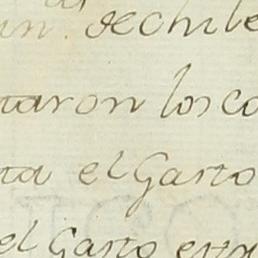 de chile
taron los co
ta el Gasto
el Gasto esta